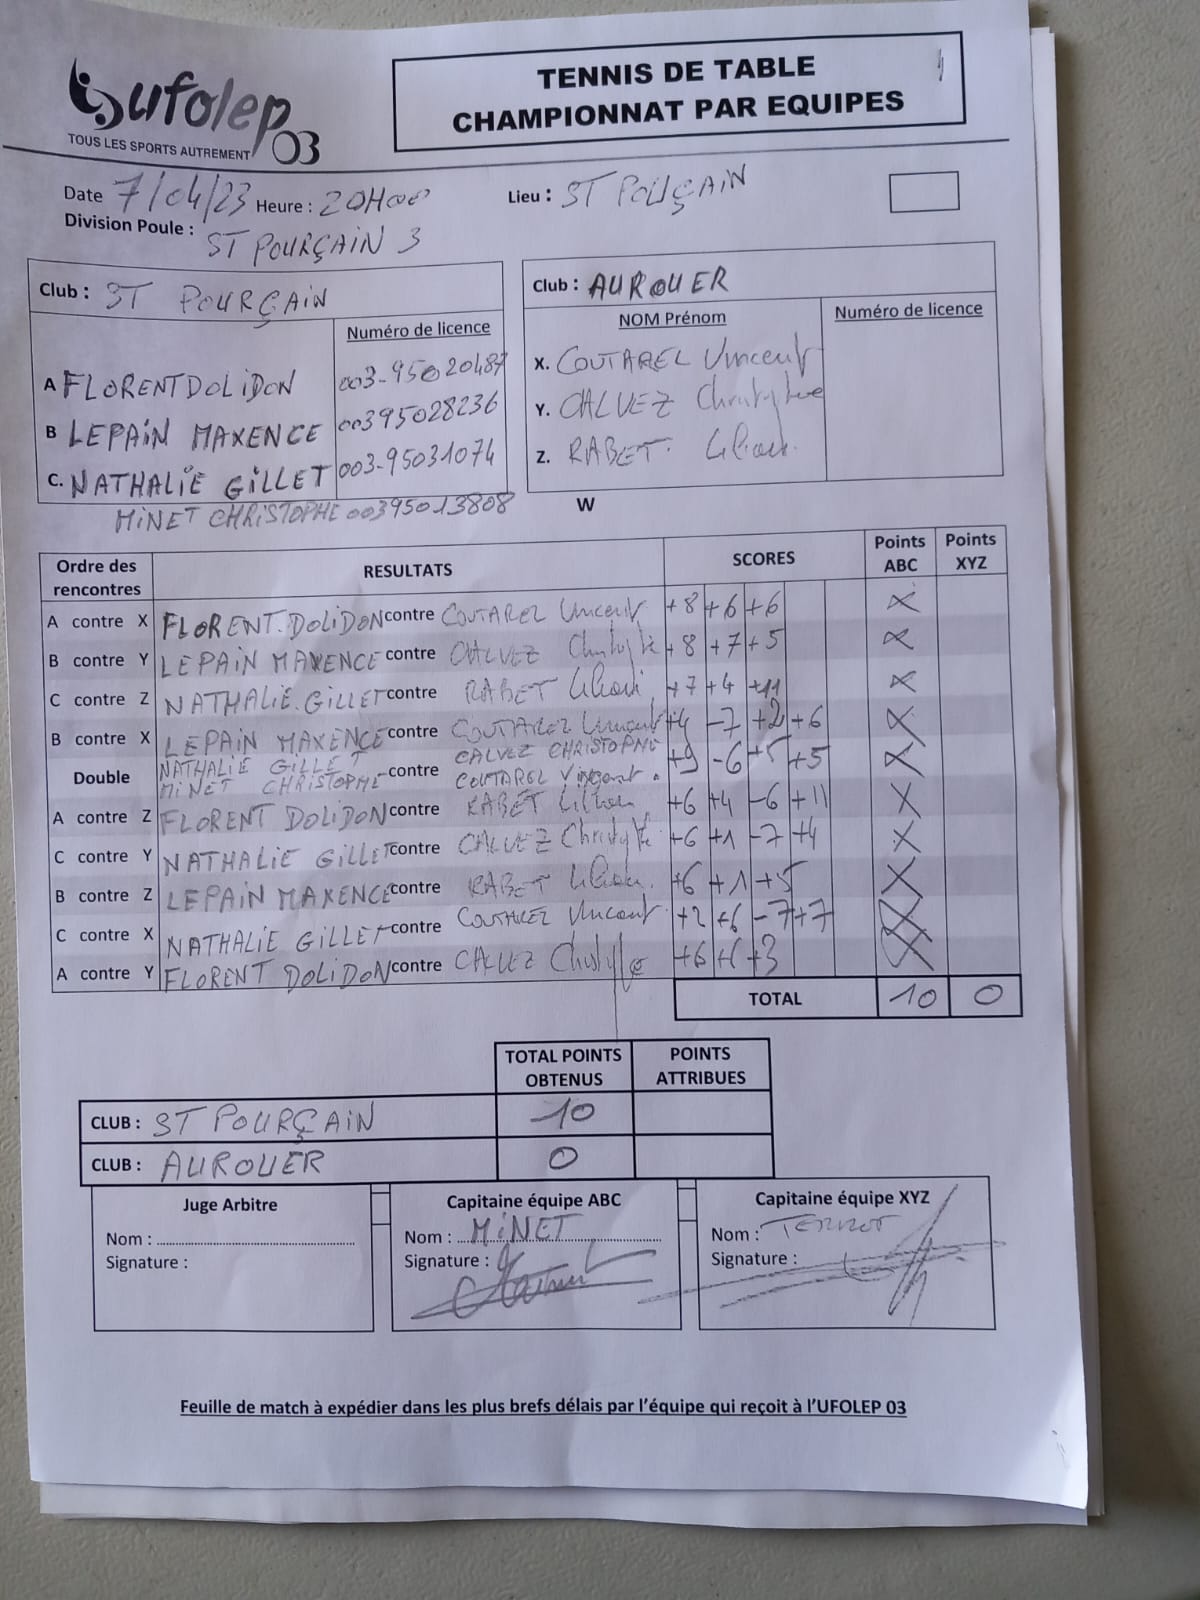 ufolep 03
TOUS LES SPORTS AUTREMENT
TENNIS DE TABLE
CHAMPIONNAT PAR EQUIPES
Date 7/04/23 Heure : 20H00 Lieu : ST POURÇAIN
Division Poule : ST POURÇAIN 3
Club : ST POURÇAIN
Numéro de licence
A FLORENT DOLIDON 003-95020487
B LEPAIN MAXENCE 00395028236
C. NATHALIE GILLET 003-95031074
MINET CHRISTOPHE 00395013808
Club : AUROUER
NOM Prénom Numéro de licence
X. COUTAREL Vincent
Y. CALVEZ Christophe
Z. RABET
W
Ordre des rencontres RESULTATS SCORES Points ABC Points XYZ
A contre X FLORENT.DOLIDON contre COUTAREL Vincent +8 +6 +6 X
B contre Y LEPAIN MAXENCE contre CALVEZ Christophe +8 +7 +5 X
C contre Z NATHALIE.GILLET contre RABET +7 +4 +11 X
B contre X LEPAIN MAXENCE contre COUTAREL Vincent +4 -7 +2 +6 X
Double NATHALIE GILLET MINET CHRISTOPHE contre CALVEZ CHRISTOPHE COUTAREL Vincent +9 -6 +5 +5 X
A contre Z FLORENT DOLIDON contre RABET +6 +4 -6 +11 X
C contre Y NATHALIE GILLET contre CALVEZ Christophe +6 +1 -7 +4 X
B contre Z LEPAIN MAXENCE contre RABET +6 +1 +5 X
C contre X NATHALIE GILLET contre COUTAREL Vincent +2 +6 -7 +7 X
A contre Y FLORENT DOLIDON contre CALVEZ Christophe +6 +6 +3 X
TOTAL 10 0
TOTAL POINTS OBTENUS POINTS ATTRIBUES
CLUB : ST POURÇAIN 10
CLUB : AUROUER 0
Juge Arbitre
Nom :
Signature :
Capitaine équipe ABC
Nom : MINET
Signature :
Capitaine équipe XYZ
Nom :
Signature :
Feuille de match à expédier dans les plus brefs délais par l'équipe qui reçoit à l'UFOLEP 03